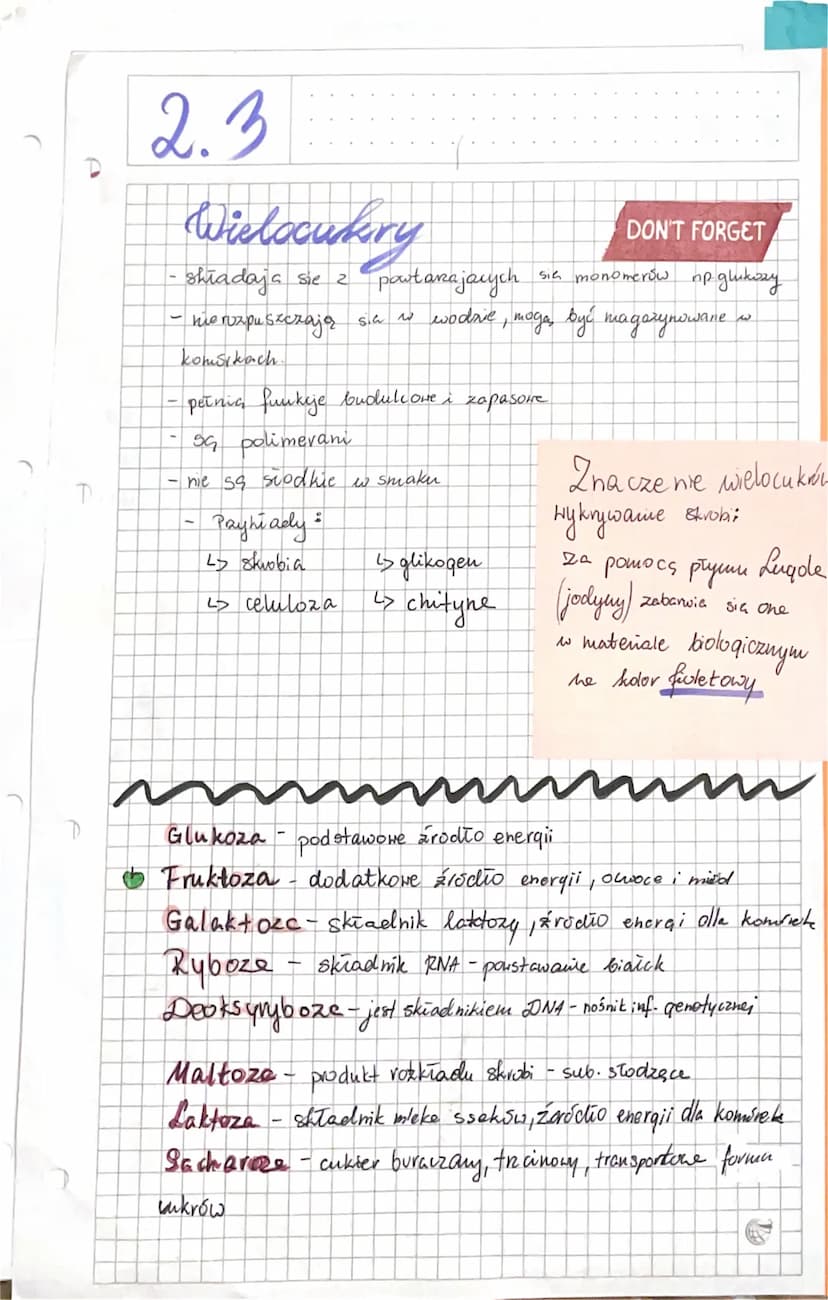 2.3
Wielocukry
DON'T FORGET
- składają się z powtarzających się monomerów np. glukozy
- nie rozpuszczają się w wodzie, mogą być magazynowane w
komórkach.
- pełnią funkcje budulcowe i zapasowe
- są polimerami
- nie są słodkie w smaku
- Przykłady:
↳ skrobia ↳ glikogen
↳ celuloza ↳ chityna
Znaczenie wielocukrów
Wykrywanie skrobi:
Za pomocą płynu Lugola
(jodyny) zabarwia się one
w materiale biologicznym
na kolor fioletowy
Glukoza - podstawowe źródło energii
Fruktoza - dodatkowe źródło energii, owoce i miód
Galaktoza - składnik laktozy, źródło energi dla komórek
Ryboza - składnik RNA - powstawanie białek
Deoksyryboza - jest składnikiem DNA - nośnik inf. genetycznej
Maltoza - produkt rozkładu skrobi - sub. słodząca
Laktoza - składnik mleka ssaków, źródło energii dla komórek
Sacharoza - cukier buraczany, trzcinowy, transportowa forma
cukrów